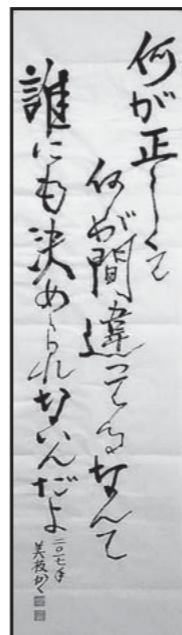 何が正しくて
何が間違ってるなんて
誰にも決められないんだよ
二〇一七年
美枝かく